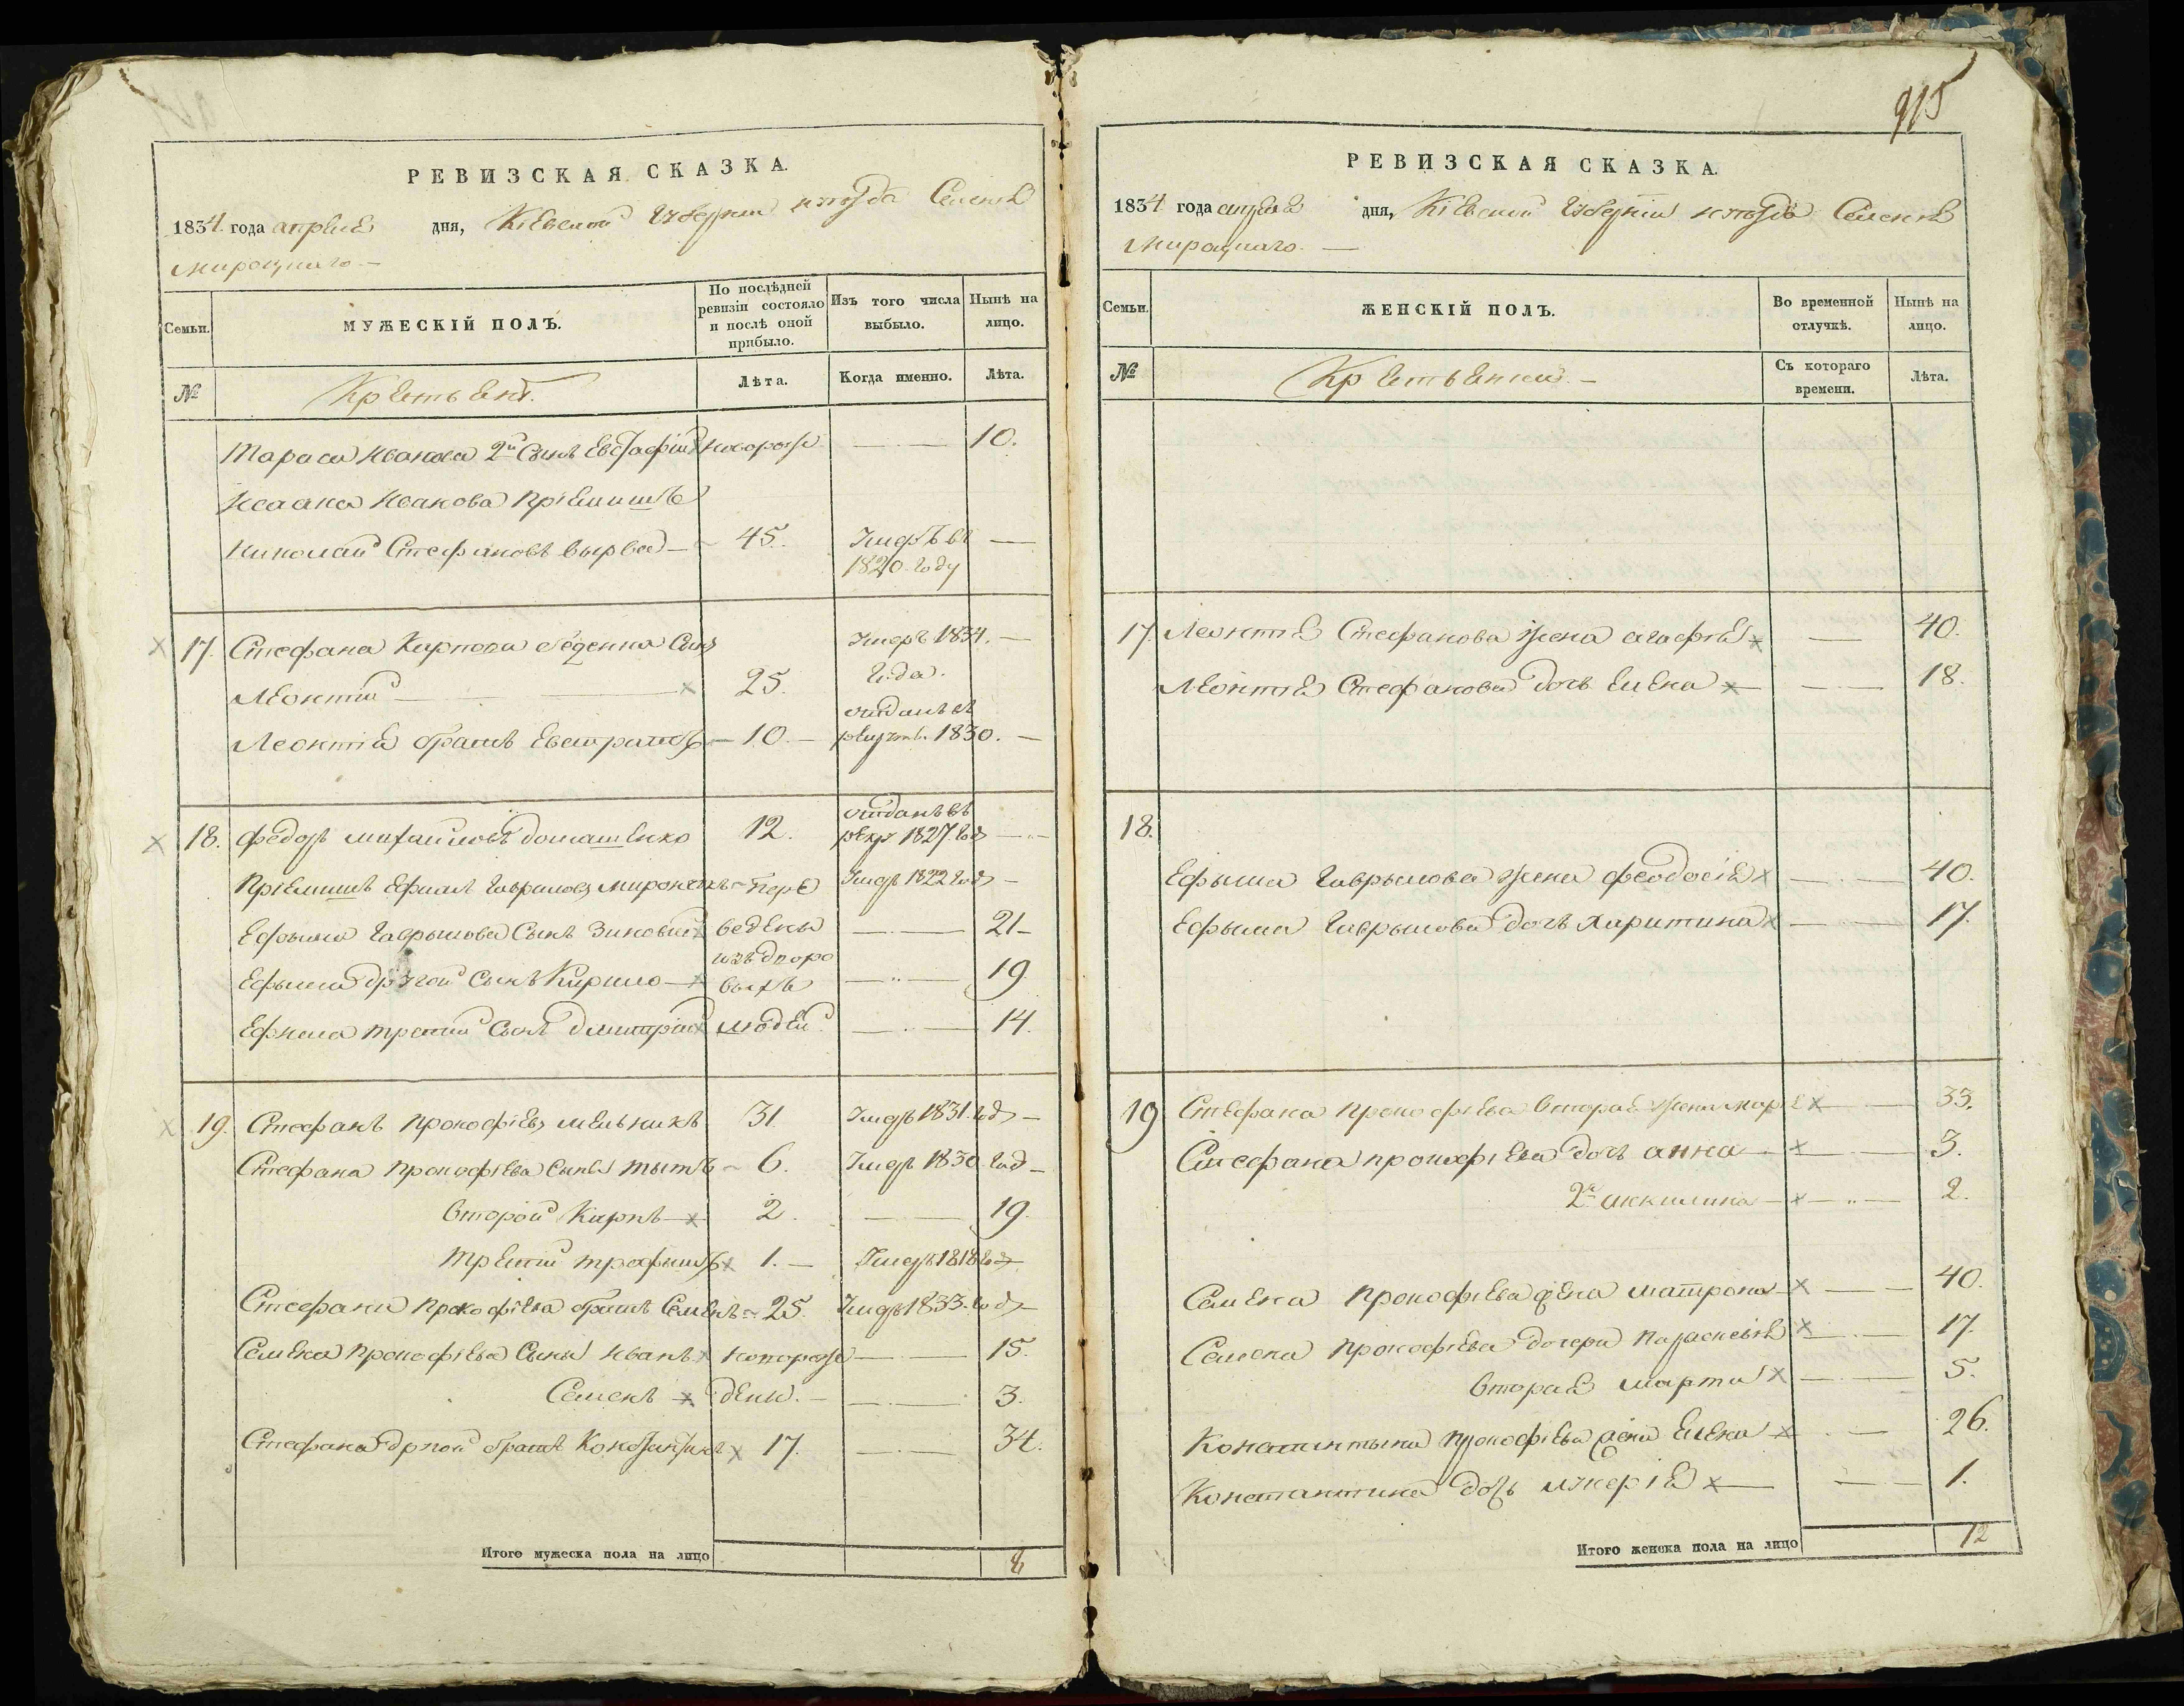 915
РЕВИЗСКАЯ СКАЗКА.
1834 года апреля дня, Кіевской Губерніи уезда Селенія
Мироцкаго.
Семьи.
МУЖЕСКІЙ ПОЛЪ.
По послѣдней ревизіи состояло и послѣ оной прибыло.
Изъ того числа выбыло.
Нынѣ на лицо.
№
Крестьяне.
Лѣта.
Когда именно.
Лѣта.
Тараса Иванова 2й Сынъ Евстафій новорож 10.
Исаака Иванова пріемишъ
Николай Стефановъ 45. Умеръ въ
1820. году
17. Стефана Карпова Сынъ Умеръ 1834.
Леонтій 25. года.
отданъ въ
Леонтія братъ Евстратій 10. рекрут. 1830.
отданъ въ
18. Федоръ Михайловъ Домашенко 12. рекр 1827 год
Пріемишъ Ефимъ Гавриловъ Умеръ 1822 год
Ефыма Гаврылова Сынъ Зиновій ведены 21
изъ дворо
Ефыма другой Сынъ Кирило выхъ 19.
Ефима третій Сынъ Дмитрій людей. 14.
19. Стефанъ Прокофіевъ Мельникъ 31. Умеръ 1831. год
Стефана Прокофіева Сыны Тытъ 6. Умеръ 1830 год
Второй Карпъ 2. 19.
Третій Трофымъ 1. Умеръ 1818 год
Стефана Прокофіева братъ Семенъ 25. Умеръ 1833. год
Семена Прокофіева Сыны Иванъ новорож 15.
Семенъ дены. 3.
Стефана другой братъ Константинъ 17. 34.
Итого мужеска пола на лицо 8
РЕВИЗСКАЯ СКАЗКА.
1834 года апреля дня, Кіевской Губерніи уезда Селенія
Мироцкаго.
Семьи.
ЖЕНСКІЙ ПОЛЪ.
Во временной отлучкѣ.
Нынѣ на лицо.
№
Крестьянки.
Съ котораго времени.
Лѣта.
17. Леонтія Стефанова жена Агафія 40.
Леонтія Стефанова дочь Елена 18.
18.
Ефыма Гаврылова жена Феодосія 40.
Ефыма Гаврылова дочь Харитина 17.
19 Стефана Прокофіева вторая жена 33.
Стефана Прокофіева дочь Анна 3.
2я Аккилина 2.
Семена Прокофіева жена Матрона 40.
Семена Прокофіева дочери Параскевія 17.
вторая Марта 5.
Константына Прокофіева жена Елена 26.
Константина дочь 1.
Итого женска пола на лицо 12